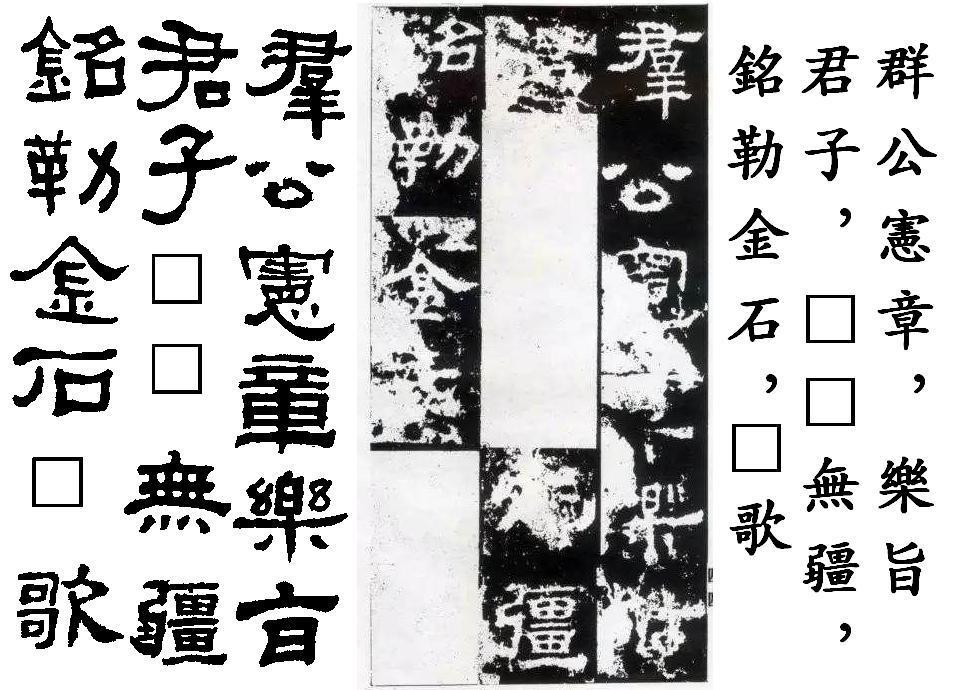 群公憲章，樂旨
君子，□□無疆，
銘勒金石，□歌
羣公憲樂
無疆
銘勒金
羣公憲章樂旨
君子□□無疆
銘勒金石□歌